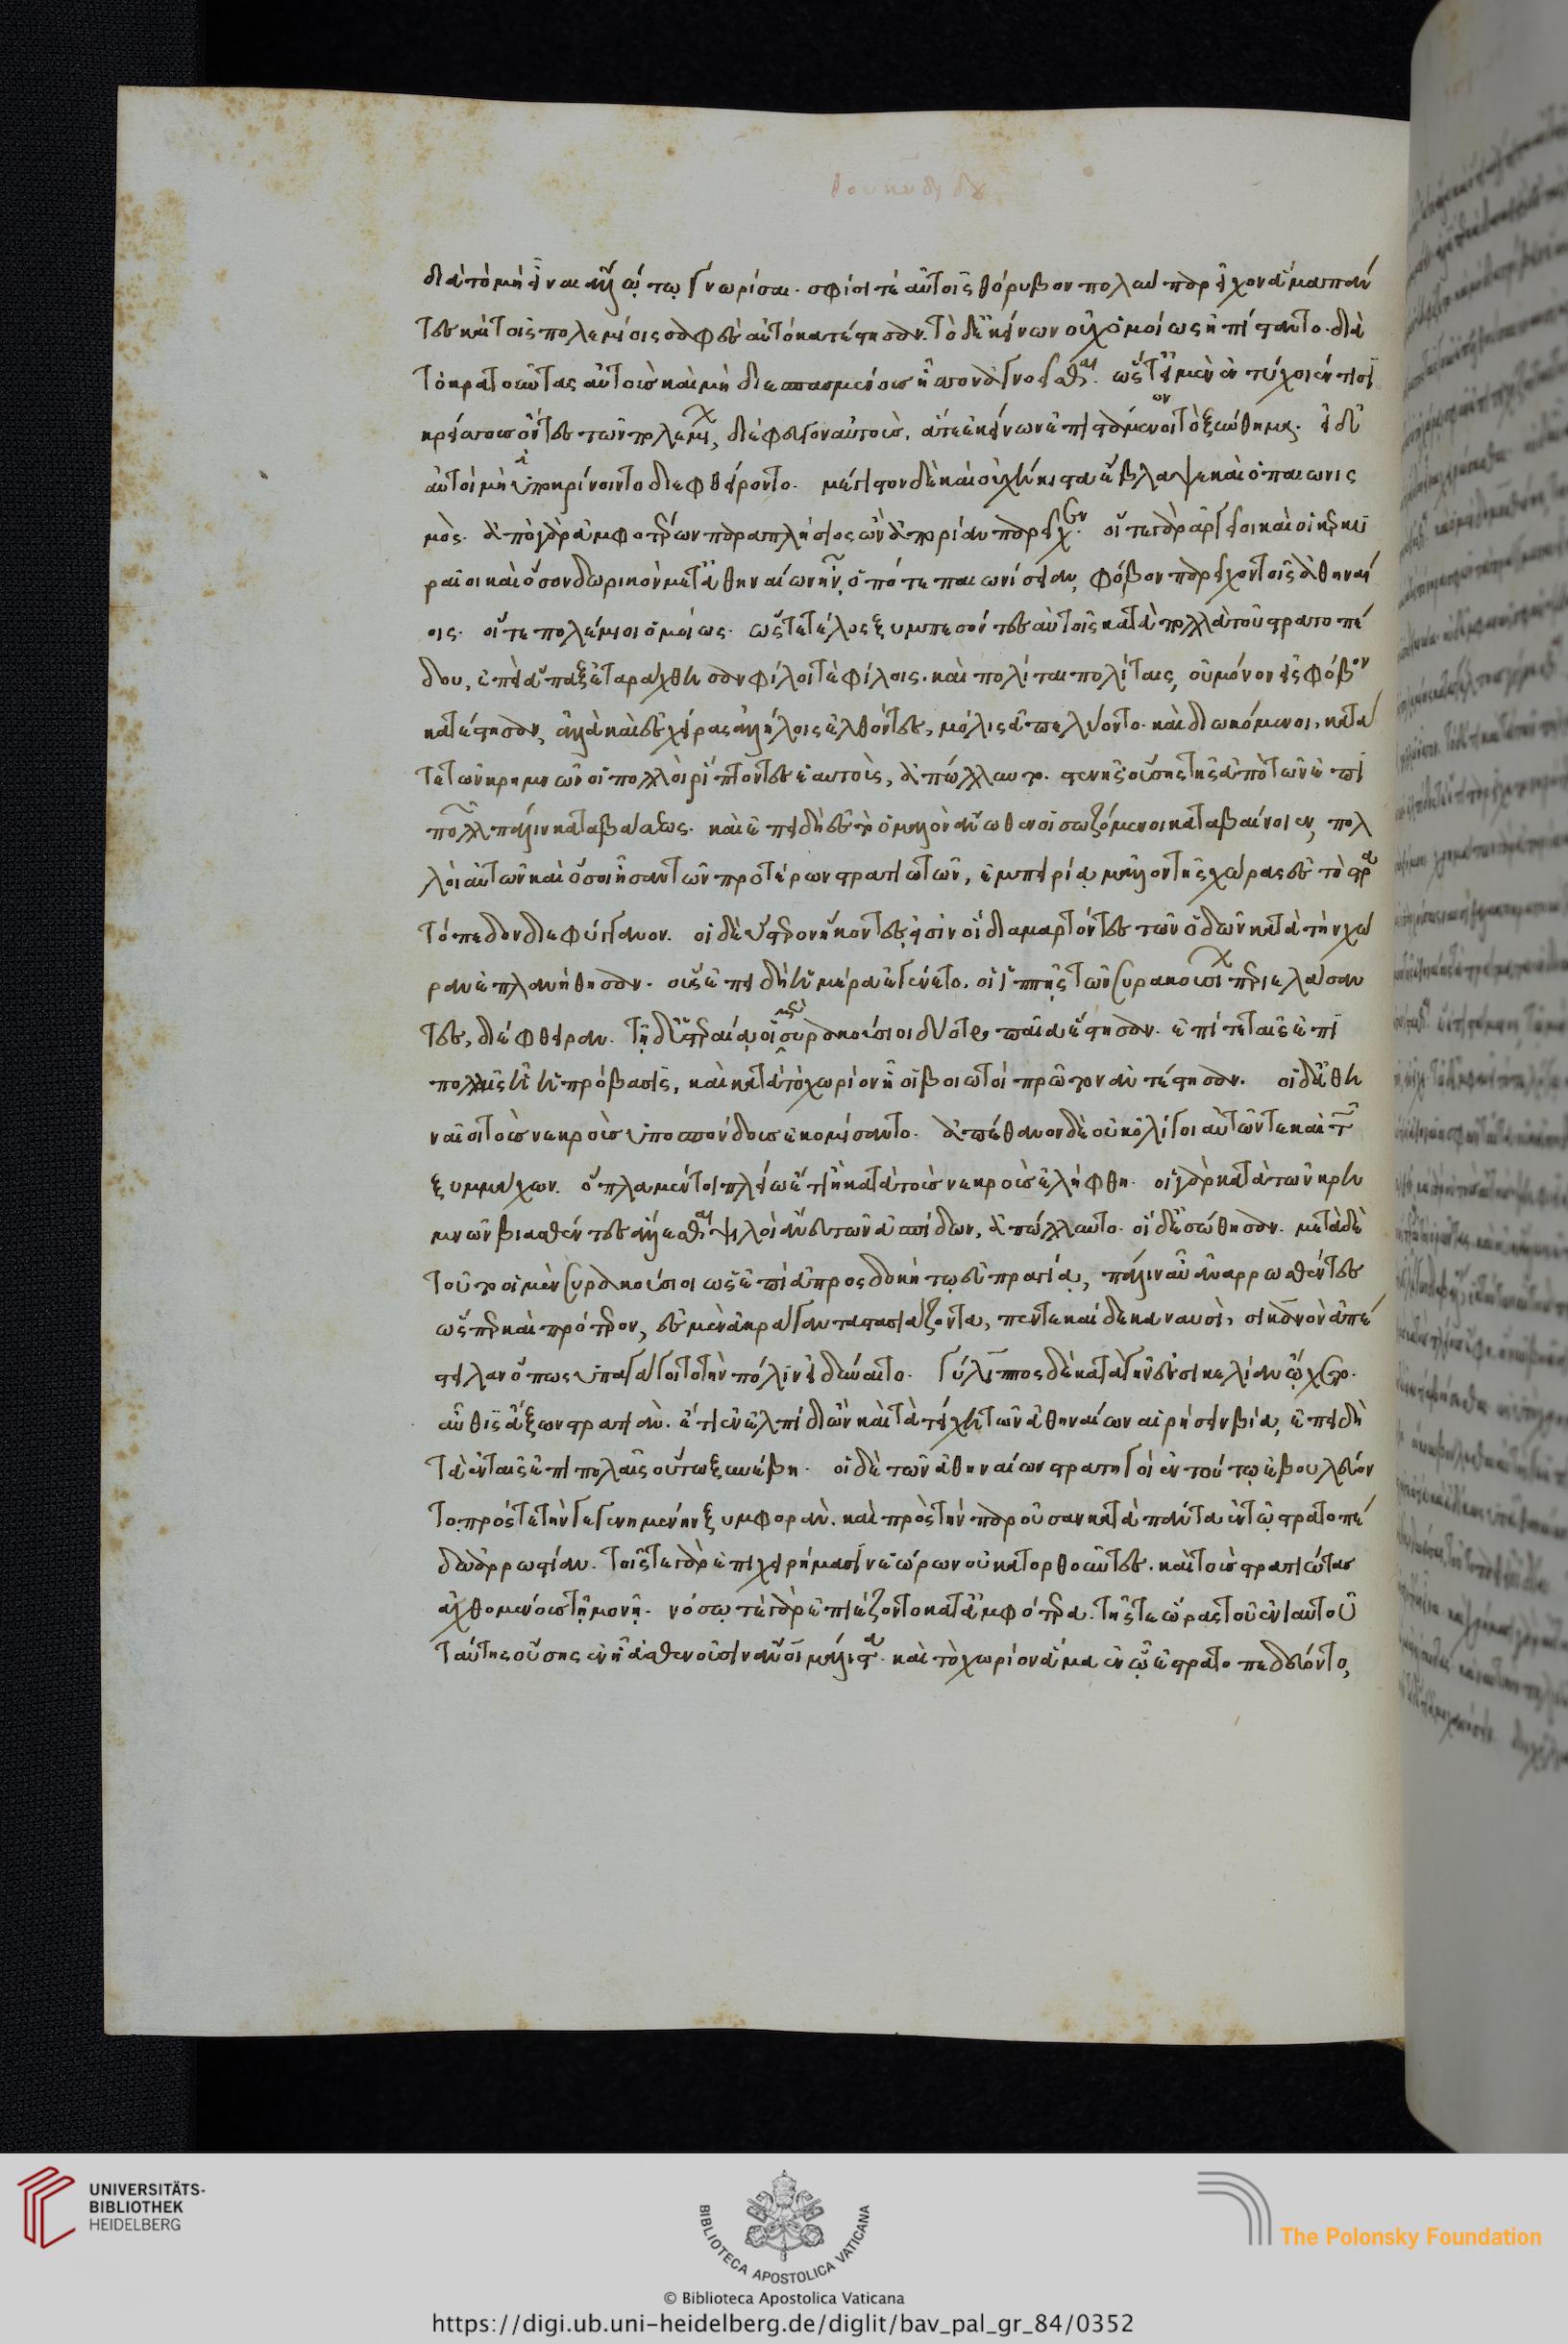 θουκυδίδου
διὰ τὸ μὴ εἶναι ἄλλῳ τῳ γνωρίσαι. σφίσι τὲ αὐτοῖς θόρυβον πολὺν παρεῖχον ἅμα πάν
τες καὶ τοῖς πολεμίοις σαφὲς αὐτὸ κατέστησαν. τὸ δ' ἐκείνων οὐχ ὁμοίως ἠπίσταντο. διὰ
τὸ κρατοῦντας αὐτοὺς καὶ μὴ διεσπασμένους ἧσσον ἀγνοεῖσθαι. ὥστ' εἰ μὲν ἐντύχοιέν τισι
κρείσσους ὄντες τῶν πολεμίων, διέφευγον αὐτοὺς, ἅτε ἐκείνων ἐπιστάμενοι τὸ ξύνθημα. εἰ δ'
αὐτοὶ μὴ ὑποκρίνοιντο διεφθείροντο. μέγιστον δὲ καὶ οὐχ ἥκιστα ἔβλαψε καὶ ὁ παιωνισ
μός. ἀπὸ γὰρ ἀμφοτέρων παραπλήσιος ὢν ἀπορίαν παρεῖχεν. οἵ τε γὰρ ἀργεῖοι καὶ οἱ κερκυ
ραῖοι καὶ ὅσον δωρικὸν μετ' ἀθηναίων ἦν, ὁπότε παιωνίσειαν, φόβον παρεῖχον τοῖς ἀθηναί
οις. οἵ τε πολέμιοι ὁμοίως. ὥστε τέλος ξυμπεσόντες αὑτοῖς κατὰ πολλὰ τοῦ στρατοπέ
δου, ἐπεὶ ἅπαξ ἐταράχθησαν φίλοι τὲ φίλοις. καὶ πολῖται πολίταις, οὐ μόνον εἰς φόβον
κατέστησαν, ἀλλὰ καὶ ἐς χεῖρας ἀλλήλοις ἐλθόντες, μόλις ἀπελύοντο. καὶ διωκόμενοι, κατά
τε τῶν κρημνῶν οἱ πολλοὶ ῥίπτοντες ἑαυτοὺς, ἀπώλλυντο. στενῆς οὔσης τῆς ἀπὸ τῶν ἐπι
πολῶν πάλιν καταβάσεως. καὶ ἐπειδὴ ἐς τὸ ὁμαλὸν ἄνωθεν οἱ σωζόμενοι καταβαίνοιεν, πολ
λοὶ αὐτῶν καὶ ὅσοι ἦσαν τῶν προτέρων στρατιωτῶν, ἐμπειρίᾳ μᾶλλον τῆς χώρας ἐς τὸ στρα
τόπεδον διεφύγγανον. οἱ δὲ ὕστερον ἥκοντες, εἰσὶν οἳ διαμαρτόντες τῶν ὁδῶν κατὰ τὴν χώ
ραν ἐπλανήθησαν. οὓς ἐπειδὴ ἡμέρα ἐγένετο. οἱ ἱππῆς τῶν συρακουσίων περιελάσαν
τες, διέφθειραν. τῇ δ' ὑστεραίᾳ οἱ μὲν συρακούσιοι δύο τροπαῖα ἔστησαν. ἐπί τε ταῖς ἐπι
πολαῖς ᾗ ἡ πρόσβασις, καὶ κατὰ τὸ χωρίον ᾗ οἱ βοιωτοὶ πρῶτον ἀντέστησαν. οἱ δ' ἀθη
ναῖοι τοὺς νεκροὺς ὑποσπόνδους ἐκομίσαντο. ἀπέθανον δὲ οὐκ ὀλίγοι αὐτῶν τε καὶ τῶν
ξυμμάχων. ὅπλα μέντοι πλείω ἔτι ἢ κατὰ τοὺς νεκροὺς ἐλήφθη. οἱ γὰρ κατὰ τῶν κρη
μνῶν βιασθέντες ἅλλεσθαι ψιλοὶ ἄνευ τῶν ἀσπίδων, ἀπώλλυντο. οἱ δ' ἐσώθησαν. μετὰ δὲ
τοῦτο οἱ μὲν συρακούσιοι ὡς ἐπὶ ἀπροσδοκήτῳ εὐπραγίᾳ, πάλιν αὖ ἀναρρωσθέντες
ὥσπερ καὶ πρότερον, ἐς μὲν ἀκράγαντα στασιάζοντα, πεντεκαίδεκα ναυσὶ, σικανὸν ἀπέ
στειλαν ὅπως ὑπαγάγοιτο τὴν πόλιν εἰ δύναιτο. γύλιππος δὲ κατὰ γῆν ἐς σικελίαν ᾤχετο.
αὖθις ἄξων στρατιάν. ἔτι ἐν ἐλπίδι ὢν καὶ τὰ τείχη τῶν ἀθηναίων αἱρήσειν βίᾳ, ἐπειδὴ
τὰ ἐν ταῖς ἐπιπολαῖς οὕτω ξυνέβη. οἱ δὲ τῶν ἀθηναίων στρατηγοὶ ἐν τούτῳ ἐβουλεύον
το, πρός τε τὴν γεγενημένην ξυμφοράν. καὶ πρὸς τὴν παροῦσαν κατὰ πάντα ἐν τῷ στρατοπέ
δῳ ἀρρωστίαν. τοῖς τε γὰρ ἐπιχειρήμασιν ἑώρων οὐ κατορθοῦντες. καὶ τοὺς στρατιώτας
ἀχθομένους τῇ μονῇ. νόσῳ τε γὰρ ἐπιέζοντο κατ' ἀμφότερα. τῆς τε ὥρας τοῦ ἐνιαυτοῦ
ταύτης οὔσης ἐν ᾗ ἀσθενοῦσιν ἄνθρωποι μάλιστα. καὶ τὸ χωρίον ἅμα ἐν ᾧ ἐστρατοπεδεύοντο,
UNIVERSITÄTS-
BIBLIOTHEK
HEIDELBERG
BIBLIOTECA APOSTOLICA VATICANA
The Polonsky Foundation
© Biblioteca Apostolica Vaticana
https://digi.ub.uni-heidelberg.de/diglit/bav_pal_gr_84/0352